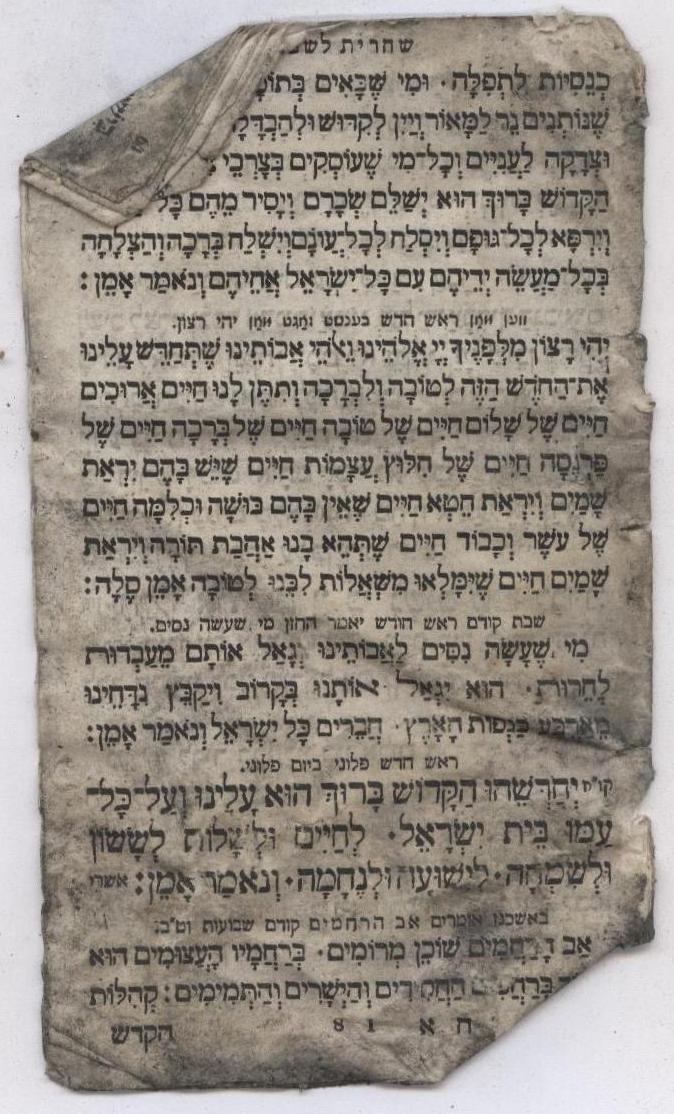 שחרית לשב
כְנֵסִיּוֹת לִתְפִלָּה· וּמִי שֶׁבָּאִים בְּתוֹכָ
שֶׁנּוֹתְנִים נֵר לַמָּאוֹר וְיַיִן לְקִדּוּשׁ וּלְהַבְדָּלָ
וּצְדָקָה לַעֲנִיִּים וְכָל־מִי שֶׁעוֹסְקִים בְּצָרְכֵי
הַקָּדוֹשׁ בָּרוּךְ הוּא יְשַׁלֵּם שְׂכָרָם וְיָסִיר מֵהֶם כָּל
וְיִרְפָּא לְכָל־גּוּפָם וְיִסְלַח לְכָל־עֲוֹנָם וְיִשְׁלַח בְּרָכָה וְהַצְלָחָה
בְּכָל־מַעֲשֵׂה יְדֵיהֶם עִם כָּל־יִשְׂרָאֵל אֲחֵיהֶם וְנֹאמַר אָמֵן׃
ווען מַמן ראש חדש בענטשט זמַגט מַמן יהי רצון.
יְהִי רָצוֹן מִלְּפָנֶיךָ יְיָ אֱלֹהֵינוּ וֵאלֹהֵי אֲבוֹתֵינוּ שֶׁתְּחַדֵּשׁ עָלֵינוּ
אֶת־הַחֹדֶשׁ הַזֶּה לְטוֹבָה וְלִבְרָכָה וְתִתֶּן לָנוּ חַיִּים אֲרוּכִים
חַיִּים שֶׁל שָׁלוֹם חַיִּים שֶׁל טוֹבָה חַיִּים שֶׁל בְּרָכָה חַיִּים שֶׁל
פַּרְנָסָה חַיִּים שֶׁל חִלּוּץ עֲצָמוֹת חַיִּים שֶׁיֵּשׁ בָּהֶם יִרְאַת
שָׁמַיִם וְיִרְאַת חֵטְא חַיִּים שֶׁאֵין בָּהֶם בּוּשָׁה וּכְלִמָּה חַיִּים
שֶׁל עֹשֶׁר וְכָבוֹד חַיִּים שֶׁתְּהֵא בָנוּ אַהֲבַת תּוֹרָה וְיִרְאַת
שָׁמַיִם חַיִּים שֶׁיִּמָּלְאוּ מִשְׁאֲלוֹת לִבֵּנוּ לְטוֹבָה אָמֵן סֶלָה׃
שבת קודם ראש חודש יאמר החזן מי שעשה נסים.
מִי שֶׁעָשָׂה נִסִּים לַאֲבוֹתֵינוּ וְגָאַל אוֹתָם מֵעַבְדוּת
לְחֵרוּת· הוּא יִגְאַל אוֹתָנוּ בְּקָרוֹב וִיקַבֵּץ נִדָּחֵינוּ
מֵאַרְבַּע כַּנְפוֹת הָאָרֶץ· חֲבֵרִים כָּל יִשְׂרָאֵל וְנֹאמַר אָמֵן׃
ראש חדש פלוני ביום פלוני.
קו״ח יְחַדְּשֵׁהוּ הַקָּדוֹשׁ בָּרוּךְ הוּא עָלֵינוּ וְעַל־כָּל־
עַמּוֹ בֵּית יִשְׂרָאֵל· לְחַיִּים וּלְשָׁלוֹם לְשָׂשׂוֹן
וּלְשִׂמְחָה· לִישׁוּעָה וּלְנֶחָמָה· וְנֹאמַר אָמֵן׃ אשרי
באשכנז אומרים אב הרחמים קודם שבועות וט״ב.
אַב הָרַחֲמִים שׁוֹכֵן מְרוֹמִים· בְּרַחֲמָיו הָעֲצוּמִים הוּא
בְּרַחֲמִים הַחֲסִידִים וְהַיְשָׁרִים וְהַתְּמִימִים׃ קְהִלּוֹת
ח א 18 הקדש